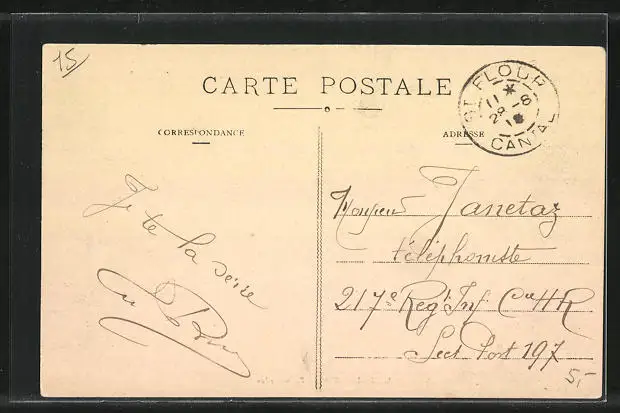 15
CARTE POSTALE
CORRESPONDANCE
ADRESSE
ST FLOUR
11 *
28 - 8
CANTAL
Je te la serre
Monsieur Janetaz
téléphoniste
217e Regt Inf Cie HR
Sect Post 197
5,-